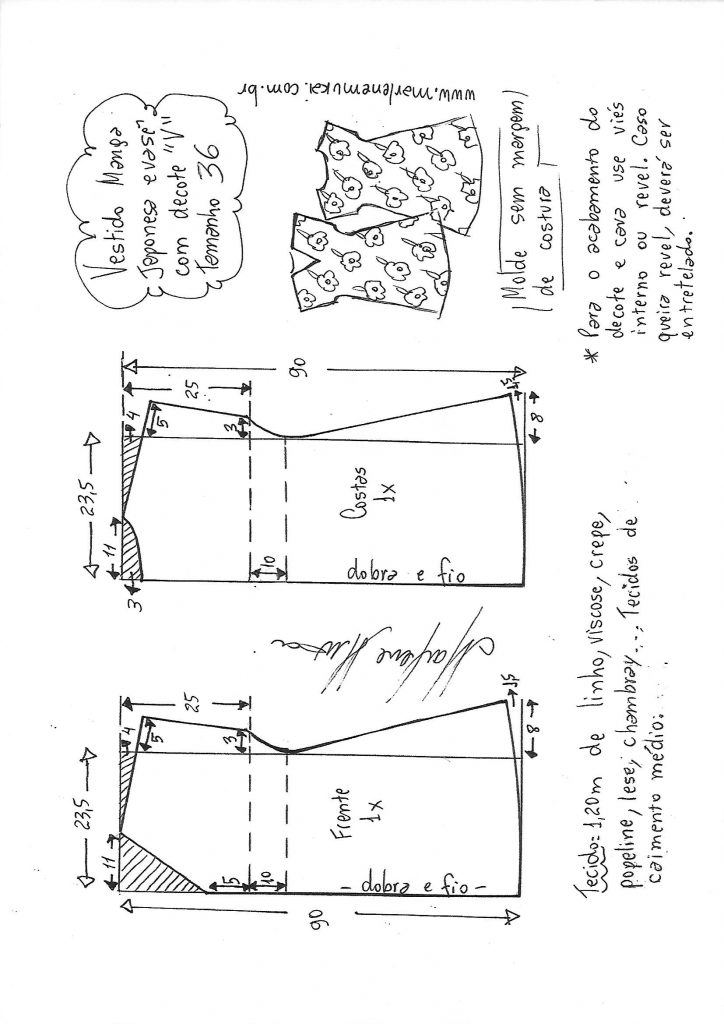 Vestido Manga
Japonesa evasê
com decote "V"
Tamanho 36
www.marlenemukai.com.br
Molde sem margem
de costura
* Para o acabamento do
decote e cava use viés
interno ou revel. Caso
queira revel, deverá ser
entretelado.
90
25
4
5
3
23,5
11
3
10
Costas
1x
dobra e fio
1,5
8
Marlene Mukai
25
4
5
3
23,5
11
5
10
Frente
1x
- dobra e fio -
90
1,5
8
Tecido: 1,20m de linho, viscose, crepe,
popeline, lese, chambray... Tecidos de
caimento médio.